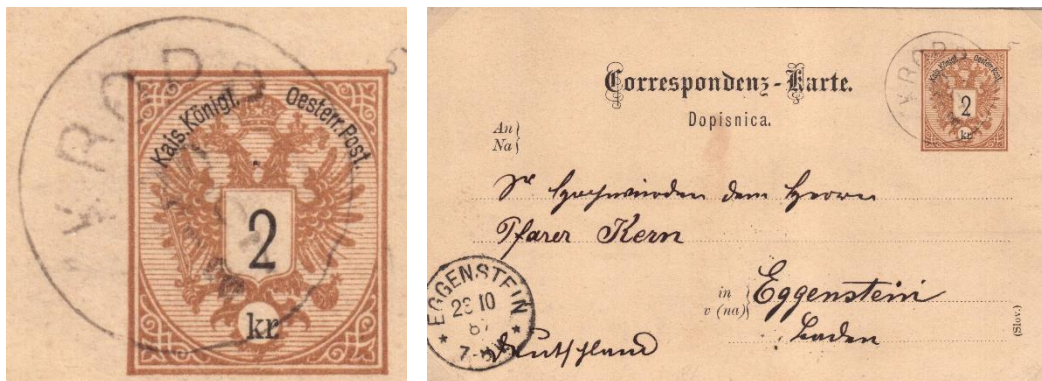 KROD
Kais. Königl. Oesterr. Post.
2
kr
Correspondenz-Karte.
Dopisnica.
KROD
Kais. Königl. Oesterr. Post.
2
kr
An
Na
Sr Hochwürden dem Herrn
Pfarer Kern
in
v (na)
Eggenstein
Baden
Deutschland
EGGENSTEIN
10
87
7-
(Slov.)